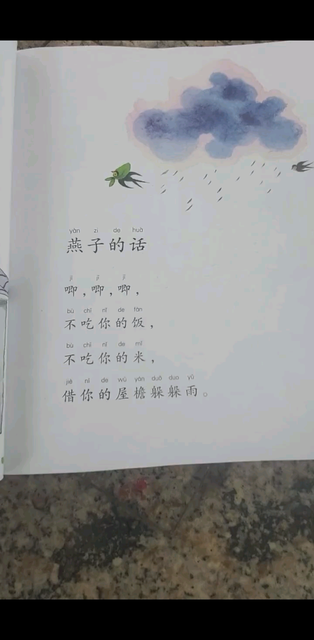 yàn zi de huà
燕子的话
jī jī jī
唧，唧，唧，
bù chī nǐ de fàn
不吃你的饭，
bù chī nǐ de mǐ
不吃你的米，
jiè nǐ de wū yán duǒ duo yǔ
借你的屋檐躲躲雨。